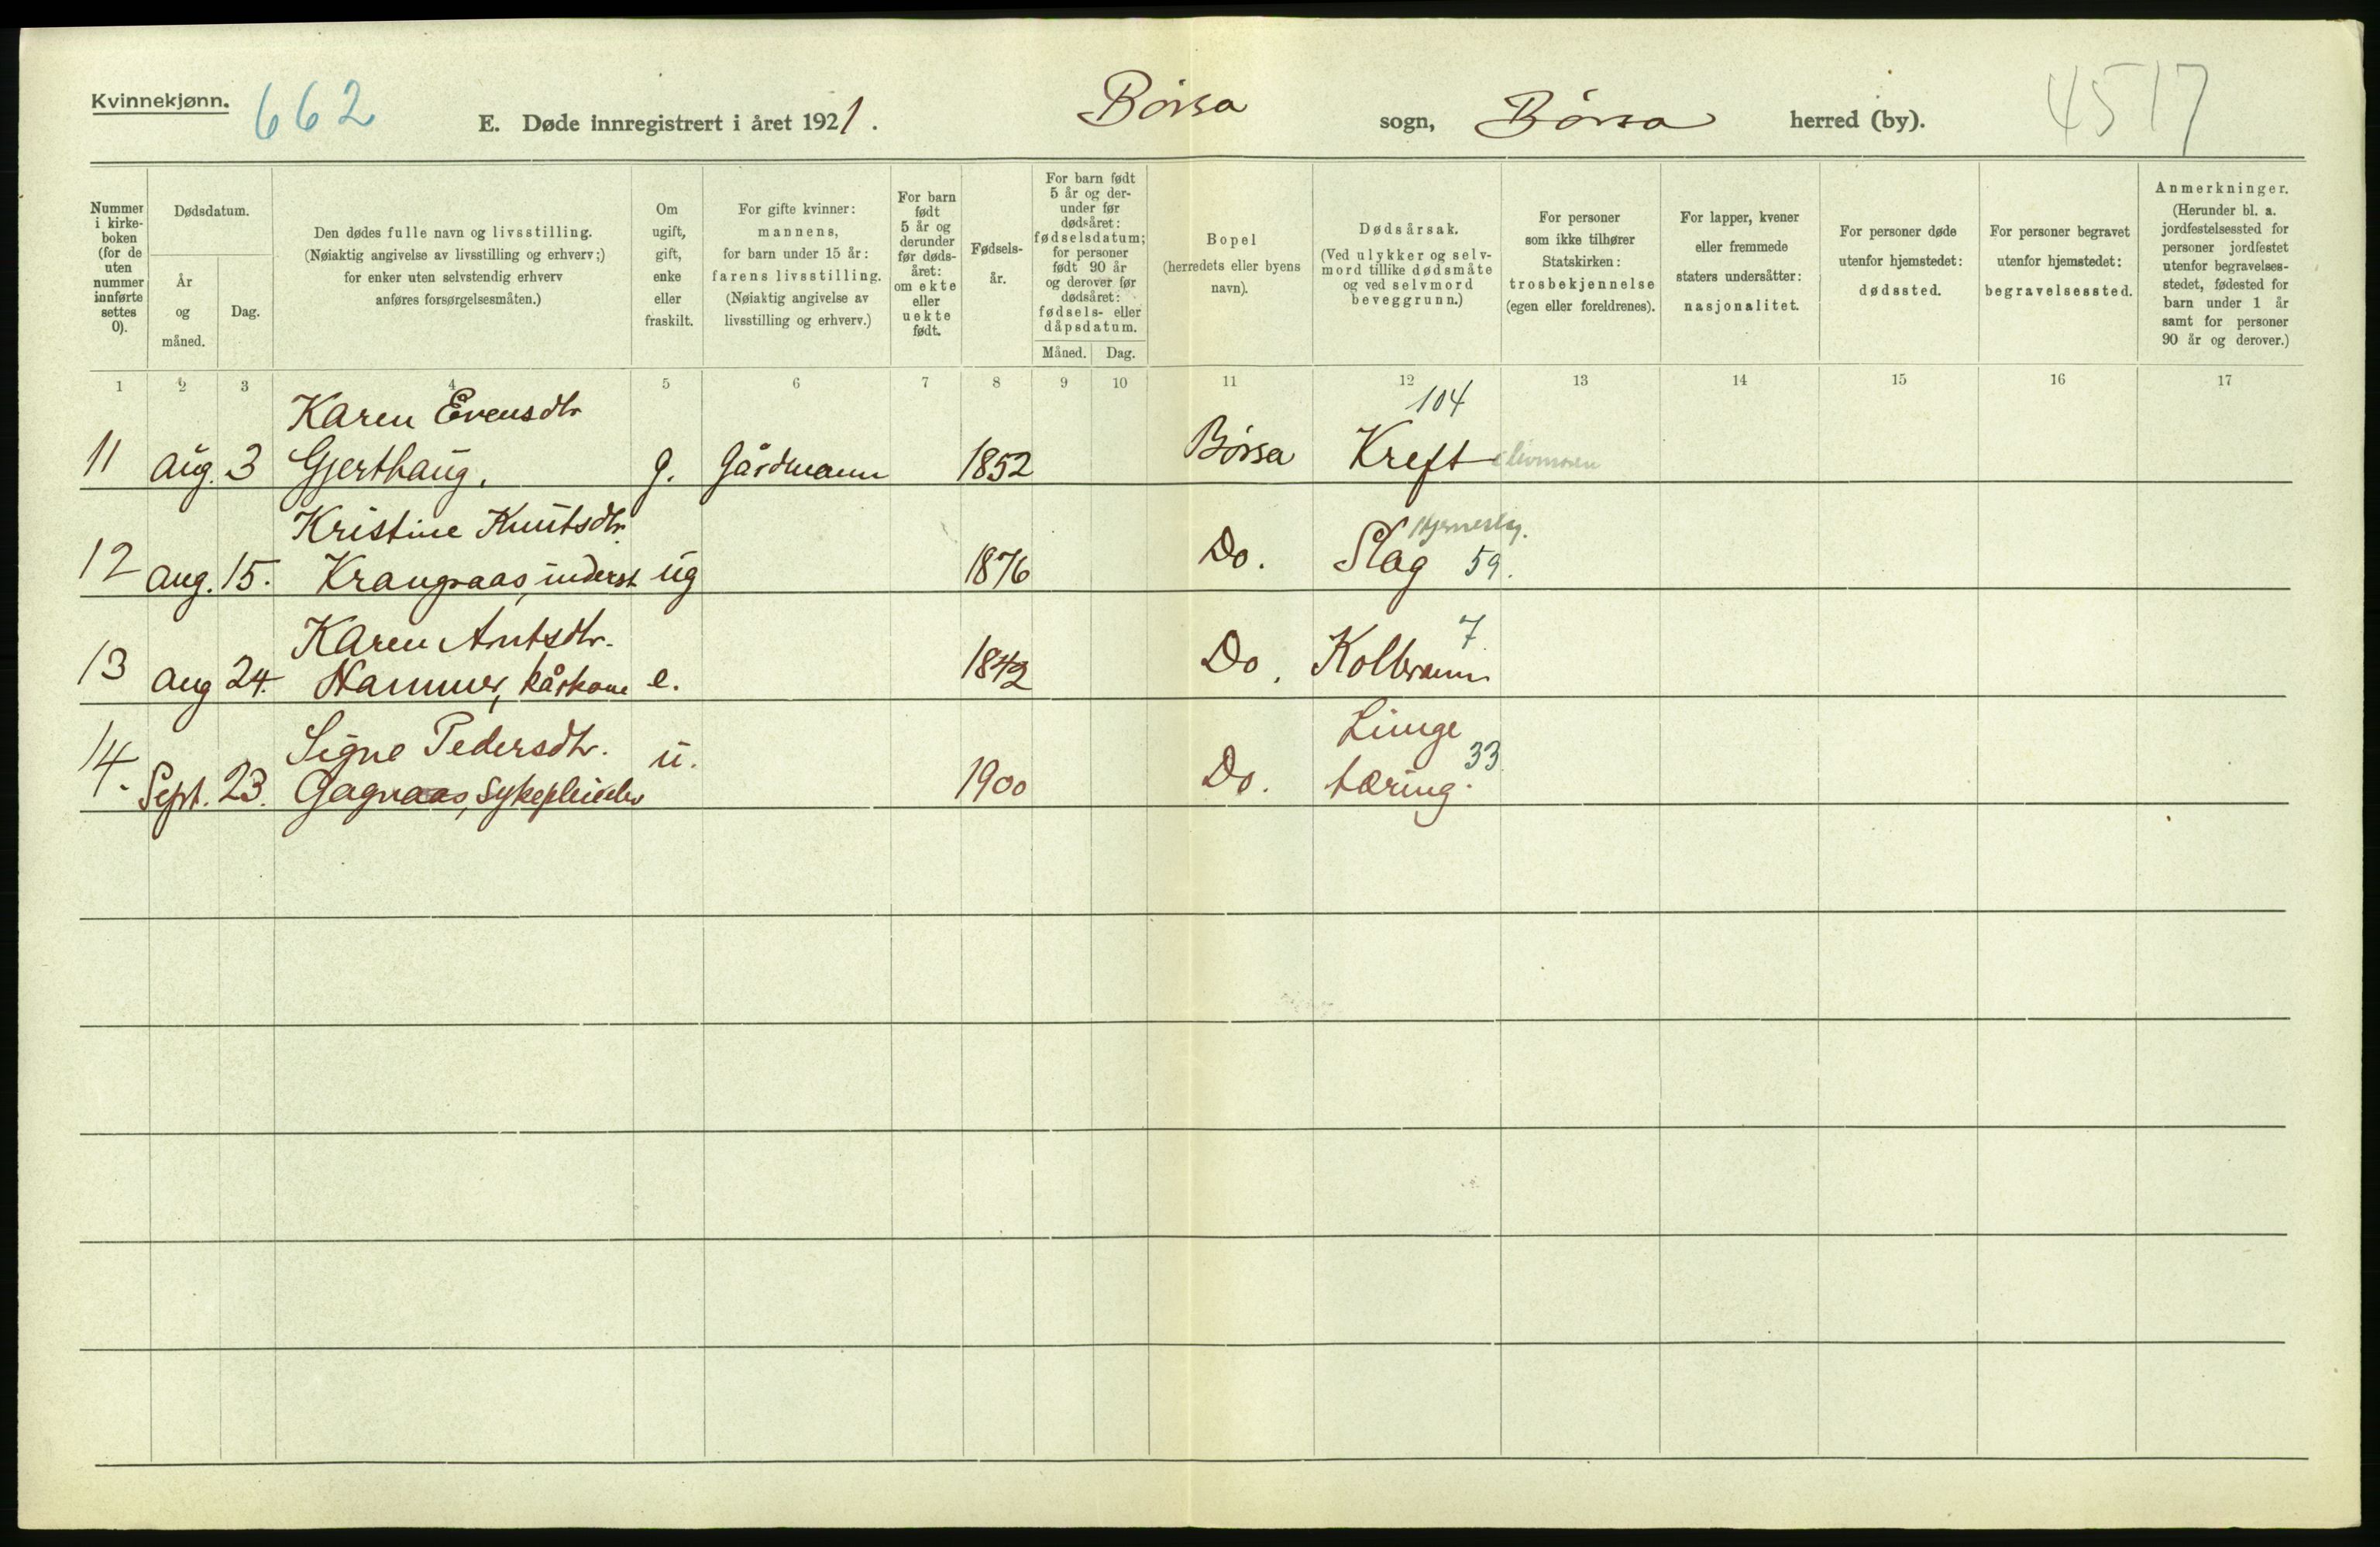 Kvinnekjønn.
662
E. Døde innregistrert i året 1921.
Børsa sogn, Børsa herred (by).
4517
Nummer i kirkeboken (for de uten nummer innførte settes 0).
Dødsdatum.
År og måned.
Dag.
Den dødes fulle navn og livsstilling.
(Nøiaktig angivelse av livsstilling og erhverv;)
for enker uten selvstendig erhverv
anføres forsørgelsesmåten.)
Om
ugift,
gift,
enke
eller
fraskilt.
For gifte kvinner:
mannens,
for barn under 15 år:
farens livsstilling.
(Nøiaktig angivelse av
livsstilling og erhverv.)
For barn
født
5 år og
derunder
før døds-
året:
om ekte
eller
uekte
født.
Fødsels-
år.
For barn født
5 år og der-
under før
dødsåret:
fødselsdatum;
for personer
født 90 år
og derover før
dødsåret:
fødsels- eller
dåpsdatum.
Måned. Dag.
Bopel
(herredets eller byens
navn).
Dødsårsak.
(Ved ulykker og selv-
mord tillike dødsmåte
og ved selvmord
beveggrunn.)
For personer
som ikke tilhører
Statskirken:
trosbekjennelse
(egen eller foreldrenes).
For lapper, kvener
eller fremmede
staters undersåtter:
nasjonalitet.
For personer døde
utenfor hjemstedet:
dødssted.
For personer begravet
utenfor hjemstedet:
begravelsessted.
Anmerkninger.
(Herunder bl. a.
jordfestelsessted for
personer jordfestet
utenfor begravelses-
stedet, fødested for
barn under 1 år
samt for personer
90 år og derover.)
1 2 3 4 5 6 7 8 9 10 11 12 13 14 15 16 17
Karen Evensdtr 104
11 Aug. 3 Gjerthaug. g. Gårdmann 1852 Børsa Kreft
Kristine Knutsdtr.
12 Aug. 15. Krangsaas, inderst ug 1876 Do. Slag 59.
Karen Arntsdtr. 7
13 Aug 24. Hammer, kårkone e. 1842 Do. Kolbrann
Signe Pedersdtr. u. Lunge 33
14. Sept. 23. Gagnaas, sykepleieelev 1900 Do. tæring.